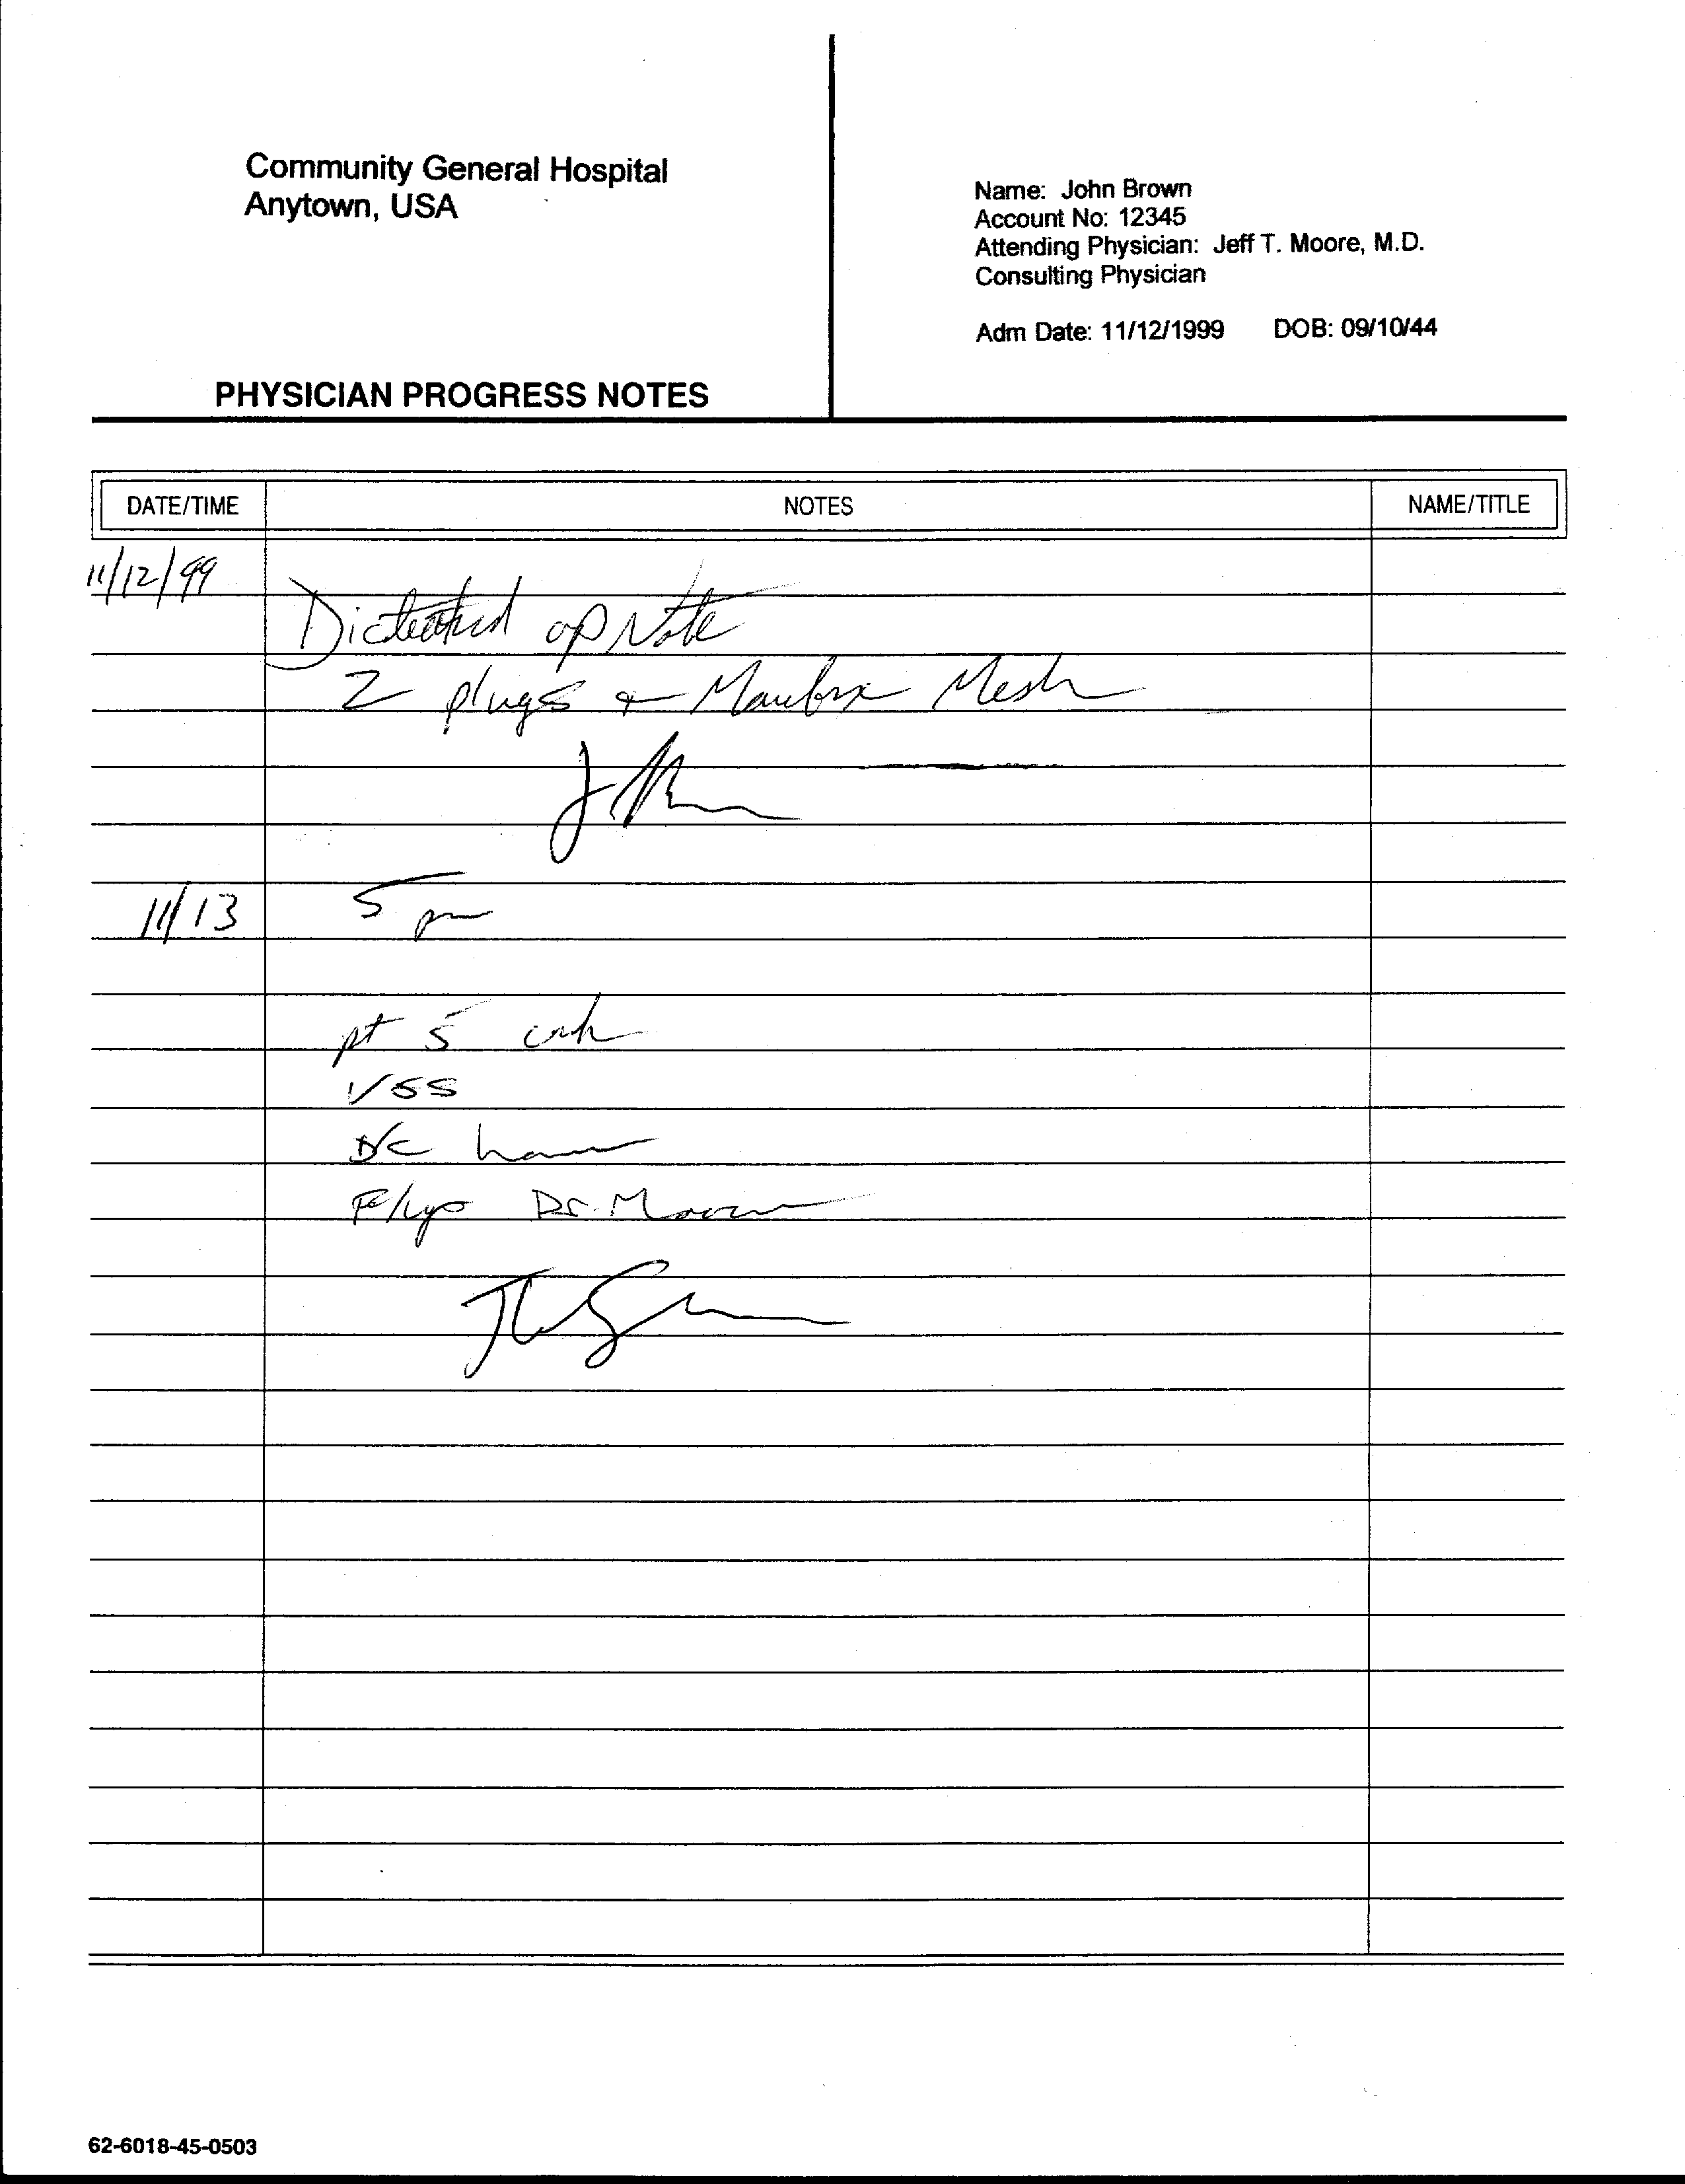 Community General Hospital
Anytown, USA
Name: John Brown
Account No: 12345
Attending Physician: Jeff T. Moore, M.D.
Consulting Physician
Adm Date: 11/12/1999 DOB: 09/10/44
PHYSICIAN PROGRESS NOTES
DATE/TIME NOTES NAME/TITLE
11/12/99
Dictated op Note
2 plugs + Mesh
11/13 5 pm
pt
VSS
D/C home
Dr. Moore
62-6018-45-0503